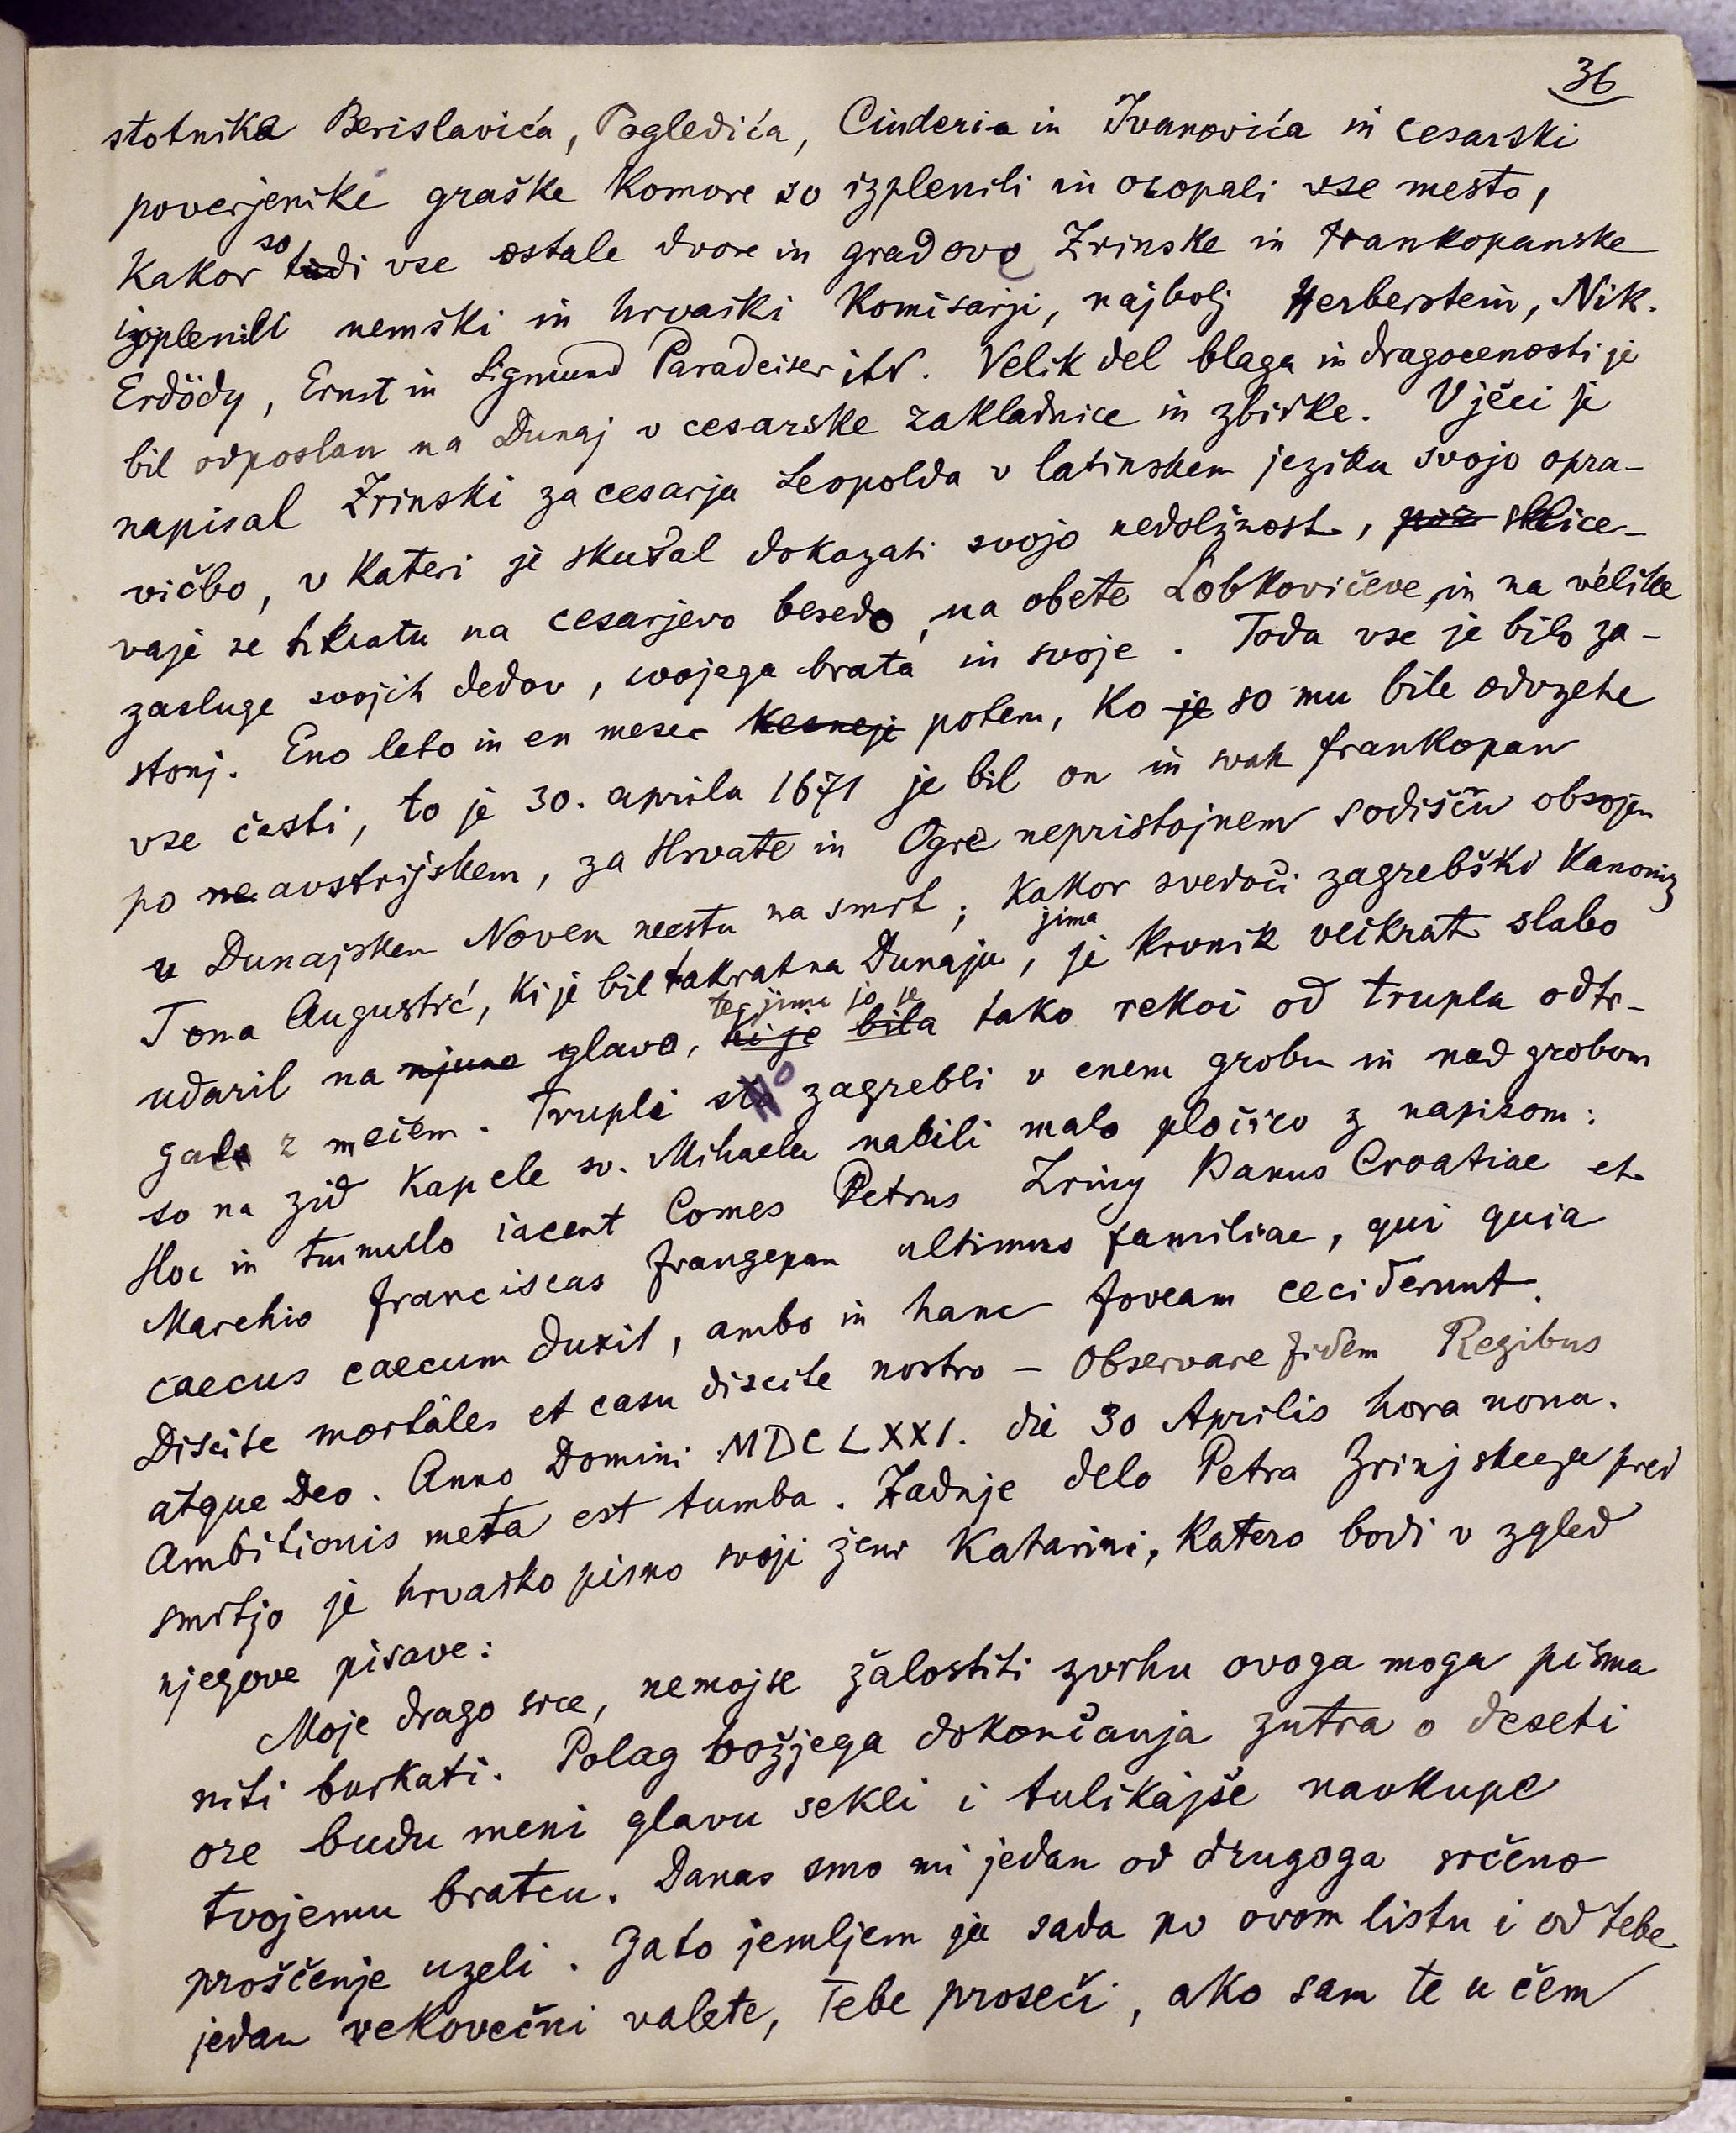 36
stotnika Berislavića, Pogledića, Cinderia in Ivanovića in cesarski
poverjenike graške Komore so izplenili in oropali vse mesto,
Kakor so tudi vse ostale dvore in gradove Zrinske in Frankopanske
izplenili nemški in hrvaški Komisarji, najbolj Herberstein, Nik.
Erdödy, Ernst in Sigmund Paradeiser itd. Velik del blaga in dragocenosti je
bil odposlan na Dunaj v cesarske zakladnice in zbirke. V ječi je
napisal Zrinski za cesarja Leopolda v latinskem jeziku svojo opra-
vičbo, v Kateri je skušal dokazati svojo nedolžnost, sklice-
vaje se tikratu na cesarjevo besedo, na obete Lobkovičeve, in na velike
zasluge svojih dedov, svojega brata in svoje. Toda vse je bilo za-
stonj. Eno leto in en mesec kesneje potem, Ko je so mu bile odvzete
vse časti, to je 30. aprila 1671 je bil on in svak Frankopan
po ne avstrijskem, za Hrvate in Ogre nepristojnem sodišču obsojen
v Dunajskem Novem mestu na smrt; Kakor svedoči zagrebški Kanonik
Toma Augustić, Ki je bil takrat na Dunaju, je jima Krvnik veikrat slabo
udaril na njuno glavo, ki je bila ter jima jo je tako rekoč od trupla odtr-
gala z mečem. Trupli sta so zagrebli v enem grobu in nad grobom
so na zid Kapele sv. Mihaela nabili malo pločico z napisom:
Hoc in tumullo iacent Comes Petrus Zriny Banus Croatiae et
Marchio Franciscas Frangepan ultimus familiae, qui quia
caecus caecum duxit, ambo in hanc foveam ceciderunt.
Discite mortales et casu discite nostro – Observare fidem Regibus
atque Deo. Anno Domini MDCLXXI. die 30 Aprilis hora nona.
Ambitionis meta est tumba. Zadnje delo Petra Zrinjskega pred
smrtjo je hrvaško pismo svoji ženi Katarini, Katero bodi v zgled
njegove pisave:
Moje drago srce, nemojse žalostiti zvrhu ovoga moga pisma
niti burkati. Polag božjega dokončanja zutra o deseti
ore budu meni glavu sekli i tulikajše navkupe
tvojemu bratcu. Danas smo mi jedan od drugoga srčeno
prošćenje uzeli. Zato jemljem ja sada po ovom listu i od tebe
jedan vekovečni valete, Tebe proseči, ako sam te u čem